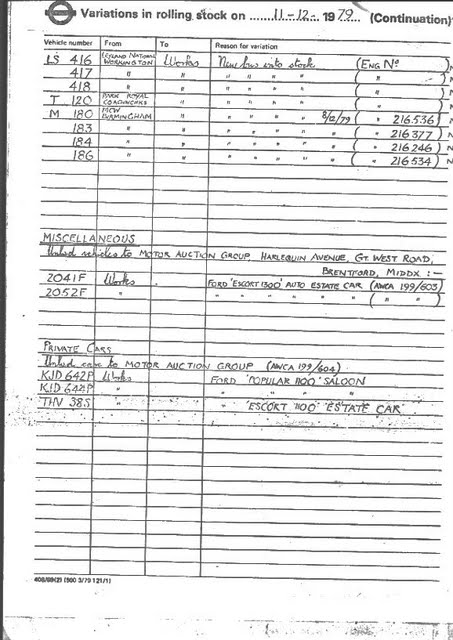 Variations in rolling stock on ....... 11-12- 1979 ... (Continuation)
Vehicle number From To Reason for variation
LS 416 LEYLAND NATIONAL WORKINGTON Works New bus into stock (ENG Nº
417 " " " " " " ( "
418 " " " " " " ( "
T 120 PARK ROYAL COACHWORKS " " " " " ( "
M 180 MCW BIRMINGHAM " " " " " 8/12/79 ( " 216.536)
183 " " " " " " ( " 216377)
184 " " " " " " ( " 216246)
186 " " " " " " ( " 216534)
MISCELLANEOUS
Unlicd vehicles to MOTOR AUCTION GROUP, HARLEQUIN AVENUE, GT. WEST ROAD,
BRENTFORD, MIDDX :-
2041F Works FORD 'ESCORT 1300' AUTO ESTATE CAR (AWCA 199/603)
2052F " " " " " " ( " " )
PRIVATE CARS
Unlicd cars to MOTOR AUCTION GROUP (AWCA 199/604)
KJD 642P Works FORD 'POPULAR 1100' SALOON
KJD 644P " " " "
THV 38S " " 'ESCORT 1100' ESTATE CAR